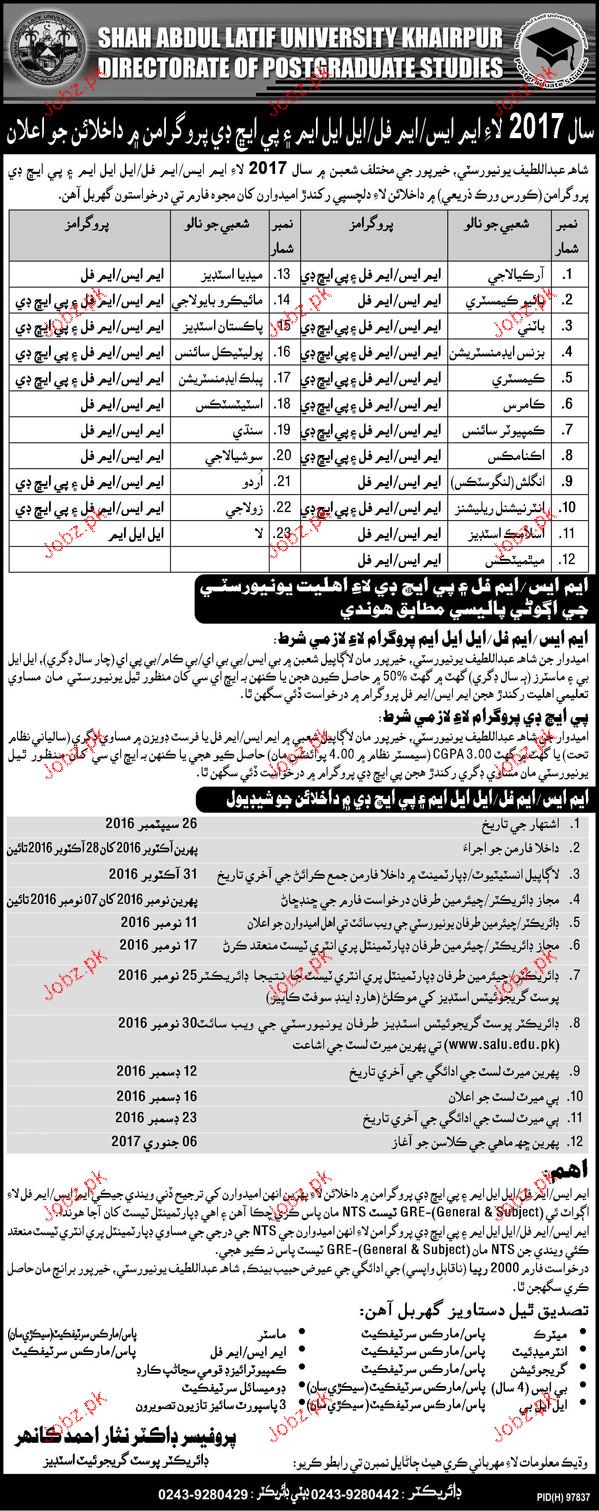 SHAH ABDUL LATIF UNIVERSITY KHAIRPUR
DIRECTORATE OF POSTGRADUATE STUDIES
Shah Abdul Latif University Khairpur
Postgraduate Studies
سال 2017 لاءِ ايم ايس/ايم فل/ايل ايل ايم ۽ پي ايڇ ڊي پروگرامن ۾ داخلائن جو اعلان
شاهه عبداللطيف يونيورسٽي، خيرپور جي مختلف شعبن ۾ سال 2017 لاءِ ايم ايس/ايم فل/ايل ايل ايم ۽ پي ايڇ ڊي
پروگرامن (ڪورس ورڪ ذريعي) ۾ داخلائن لاءِ دلچسپي رکندڙ اميدوارن کان مجوه فارم تي درخواستون گهربل آهن.
نمبر شمار شعبي جو نالو پروگرامز نمبر شمار شعبي جو نالو پروگرامز
1. آرڪيالاجي ايم ايس/ايم فل ۽ پي ايڇ ڊي 13. ميڊيا اسٽڊيز ايم ايس/ايم فل
2. بائيو ڪيمسٽري ايم ايس/ايم فل 14. مائيڪرو بايولاجي ايم ايس/ايم فل ۽ پي ايڇ ڊي
3. باٽني ايم ايس/ايم فل ۽ پي ايڇ ڊي 15. پاڪستان اسٽڊيز ايم ايس/ايم فل ۽ پي ايڇ ڊي
4. بزنس ايڊمنسٽريشن ايم ايس/ايم فل ۽ پي ايڇ ڊي 16. پوليٽيڪل سائنس ايم ايس/ايم فل ۽ پي ايڇ ڊي
5. ڪيمسٽري ايم ايس/ايم فل ۽ پي ايڇ ڊي 17. پبلڪ ايڊمنسٽريشن ايم ايس/ايم فل ۽ پي ايڇ ڊي
6. ڪامرس ايم ايس/ايم فل ۽ پي ايڇ ڊي 18. اسٽيٽسٽڪس ايم ايس/ايم فل
7. ڪمپيوٽر سائنس ايم ايس/ايم فل ۽ پي ايڇ ڊي 19. سنڌي ايم ايس/ايم فل
8. اڪنامڪس ايم ايس/ايم فل ۽ پي ايڇ ڊي 20. سوشيالاجي ايم ايس/ايم فل
9. انگلش (لنگوسٽڪس) ايم ايس/ايم فل 21. اُردو ايم ايس/ايم فل ۽ پي ايڇ ڊي
10. انٽرنيشنل ريليشنز ايم ايس/ايم فل ۽ پي ايڇ ڊي 22. زولاجي ايم ايس/ايم فل ۽ پي ايڇ ڊي
11. اسلامڪ اسٽڊيز ايم ايس/ايم فل 23. لا ايل ايل ايم
12. ميٿميٽڪس ايم ايس/ايم فل
ايم ايس/ايم فل ۽ پي ايڇ ڊي لاءِ اهليت يونيورسٽي
جي اڳوڻي پاليسي مطابق هوندي
ايم ايس/ايم فل/ايل ايل ايم پروگرام لاءِ لازمي شرط:
اميدوار جن شاهه عبداللطيف يونيورسٽي، خيرپور مان لاڳاپيل شعبن ۾ بي ايس/بي بي اي/بي ڪام/بي پي اي (چار سال ڊگري)، ايل ايل
بي ۽ ماسٽرز (ٻه سال ڊگري) گهٽ ۾ گهٽ 50% ۾ حاصل ڪيون هجن يا ڪنهن به ايڇ اي سي کان منظور ٿيل يونيورسٽي مان مساوي
تعليمي اهليت رکندڙ هجن ايم ايس/ايم فل پروگرام ۾ درخواست ڏئي سگهن ٿا.
پي ايڇ ڊي پروگرام لاءِ لازمي شرط:
اميدوار جن شاهه عبداللطيف يونيورسٽي، خيرپور مان لاڳاپيل شعبي ۾ ايم ايس/ايم فل يا فرسٽ ڊويزن ۾ مساوي ڊگري (سالياني نظام
تحت) يا گهٽ ۾ گهٽ CGPA 3.00 (سيمسٽر نظام ۾ 4.00 پوائنٽس مان) حاصل ڪيو هجي يا ڪنهن به ايڇ اي سي کان منظور ٿيل
يونيورسٽي مان مساوي ڊگري رکندڙ هجن پي ايڇ ڊي پروگرام ۾ درخواست ڏئي سگهن ٿا.
ايم ايس/ايم فل/ايل ايل ايم ۽ پي ايڇ ڊي ۾ داخلائن جو شيڊيول
1. اشتهار جي تاريخ 26 سيپٽمبر 2016
2. داخلا فارمن جو اجراءَ پهرين آڪٽوبر 2016 کان 28 آڪٽوبر 2016 تائين
3. لاڳاپيل انسٽيٽيوٽ/ڊپارٽمينٽ ۾ داخلا فارمن جمع ڪرائڻ جي آخري تاريخ 31 آڪٽوبر 2016
4. مجاز ڊائريڪٽر/چيئرمين طرفان درخواست فارم جي ڇنڊڇاڻ پهرين نومبر 2016 کان 07 نومبر 2016 تائين
5. ڊائريڪٽر/چيئرمين طرفان يونيورسٽي جي ويب سائٽ تي اهل اميدوارن جو اعلان 11 نومبر 2016
6. مجاز ڊائريڪٽر/چيئرمين طرفان ڊپارٽمينٽل پري انٽري ٽيسٽ منعقد ڪرڻ 17 نومبر 2016
7. ڊائريڪٽر/چيئرمين طرفان ڊپارٽمينٽل پري انٽري ٽيسٽ جا نتيجا ڊائريڪٽر 25 نومبر 2016
پوسٽ گريجوئيٽس اسٽڊيز کي موڪلڻ (هارڊ اينڊ سوفٽ ڪاپيز)
8. ڊائريڪٽر پوسٽ گريجوئيٽس اسٽڊيز طرفان يونيورسٽي جي ويب سائٽ 30 نومبر 2016
(www.salu.edu.pk) تي پهرين ميرٽ لسٽ جي اشاعت
9. پهرين ميرٽ لسٽ جي ادائگي جي آخري تاريخ 12 ڊسمبر 2016
10. ٻي ميرٽ لسٽ جو اعلان 16 ڊسمبر 2016
11. ٻي ميرٽ لسٽ جي ادائگي جي آخري تاريخ 23 ڊسمبر 2016
12. پهرين ڇهه ماهي جي ڪلاسن جو آغاز 06 جنوري 2017
اهم:
ايم ايس/ايم فل/ايل ايل ايم ۽ پي ايڇ ڊي پروگرامن ۾ داخلائن لاءِ پهرين انهن اميدوارن کي ترجيح ڏني ويندي جيڪي ايم ايس/ايم فل لاءِ
اڳواٽ ئي GRE-(General & Subject) ٽيسٽ NTS مان پاس ڪري چڪا آهن ۽ اهي ڊپارٽمينٽل ٽيسٽ کان آجا هوندا.
ايم ايس/ايم فل/ايل ايل ايم ۽ پي ايڇ ڊي پروگرامن لاءِ انهن اميدوارن جي NTS جي درجي جي مساوي ڊپارٽمينٽل پري انٽري ٽيسٽ منعقد
ڪئي ويندي جن NTS مان GRE-(General & Subject) ٽيسٽ پاس نه ڪيو هجي.
درخواست فارم 2000 رپيا (ناقابل واپسي) جي ادائگي جي عيوض حبيب بينڪ، شاهه عبداللطيف يونيورسٽي، خيرپور برانچ مان حاصل
ڪري سگهجن ٿا.
تصديق ٿيل دستاويز گهربل آهن:
• ميٽرڪ پاس/مارڪس سرٽيفڪيٽ • ماسٽر پاس/مارڪس سرٽيفڪيٽ (سيڪڙي سان)
• انٽرميڊئيٽ پاس/مارڪس سرٽيفڪيٽ • ايم ايس/ايم فل پاس/مارڪس سرٽيفڪيٽ
• گريجوئيشن پاس/مارڪس سرٽيفڪيٽ • ڪمپيوٽرائيزڊ قومي سڃاڻپ ڪارڊ
• بي ايس (4 سال) پاس/مارڪس سرٽيفڪيٽ (سيڪڙي سان) • ڊوميسائل سرٽيفڪيٽ
• ايل ايل بي پاس/مارڪس سرٽيفڪيٽ (سيڪڙي سان) • 3 پاسپورٽ سائيز تازيون تصويرون
وڌيڪ معلومات لاءِ مهرباني ڪري هيٺ ڄاڻايل نمبرن تي رابطو ڪريو:
پروفيسر ڊاڪٽر نثار احمد ڪانهر
ڊائريڪٽر پوسٽ گريجوئيٽ اسٽڊيز
ڊائريڪٽر: 0243-9280442 ڊپٽي ڊائريڪٽر: 0243-9280429
PID(H) 97837
Jobz.pk